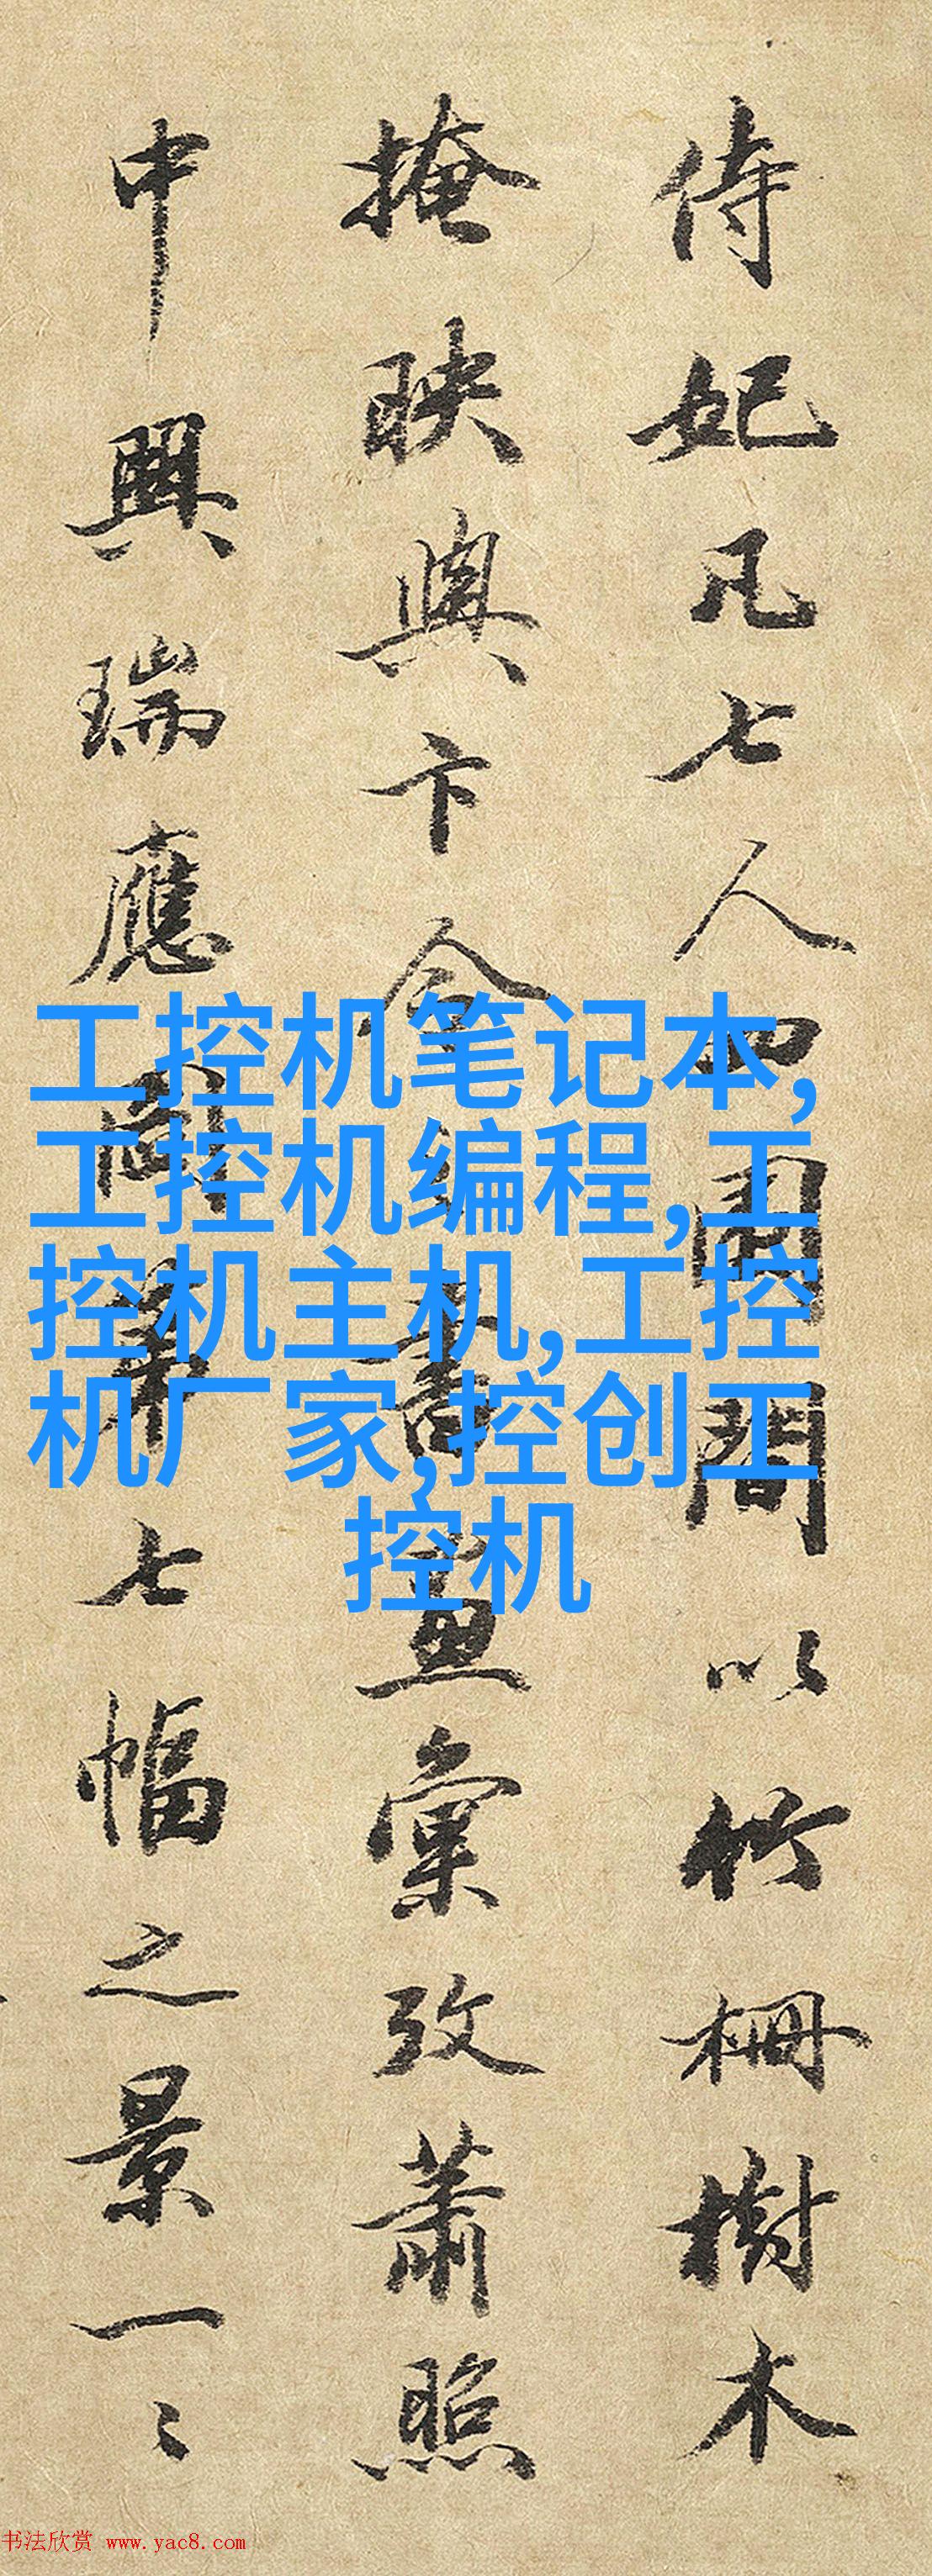 侍妃凡七人四圍間以竹栅樹木
掩映與卞令書畫彙攷蕭照
中興瑞應圖第七幅之景一〻
工控机笔记本,
工控机编程,工
控机主机,工控
机厂家,控创工
控机
书法欣赏 www.yac8.com